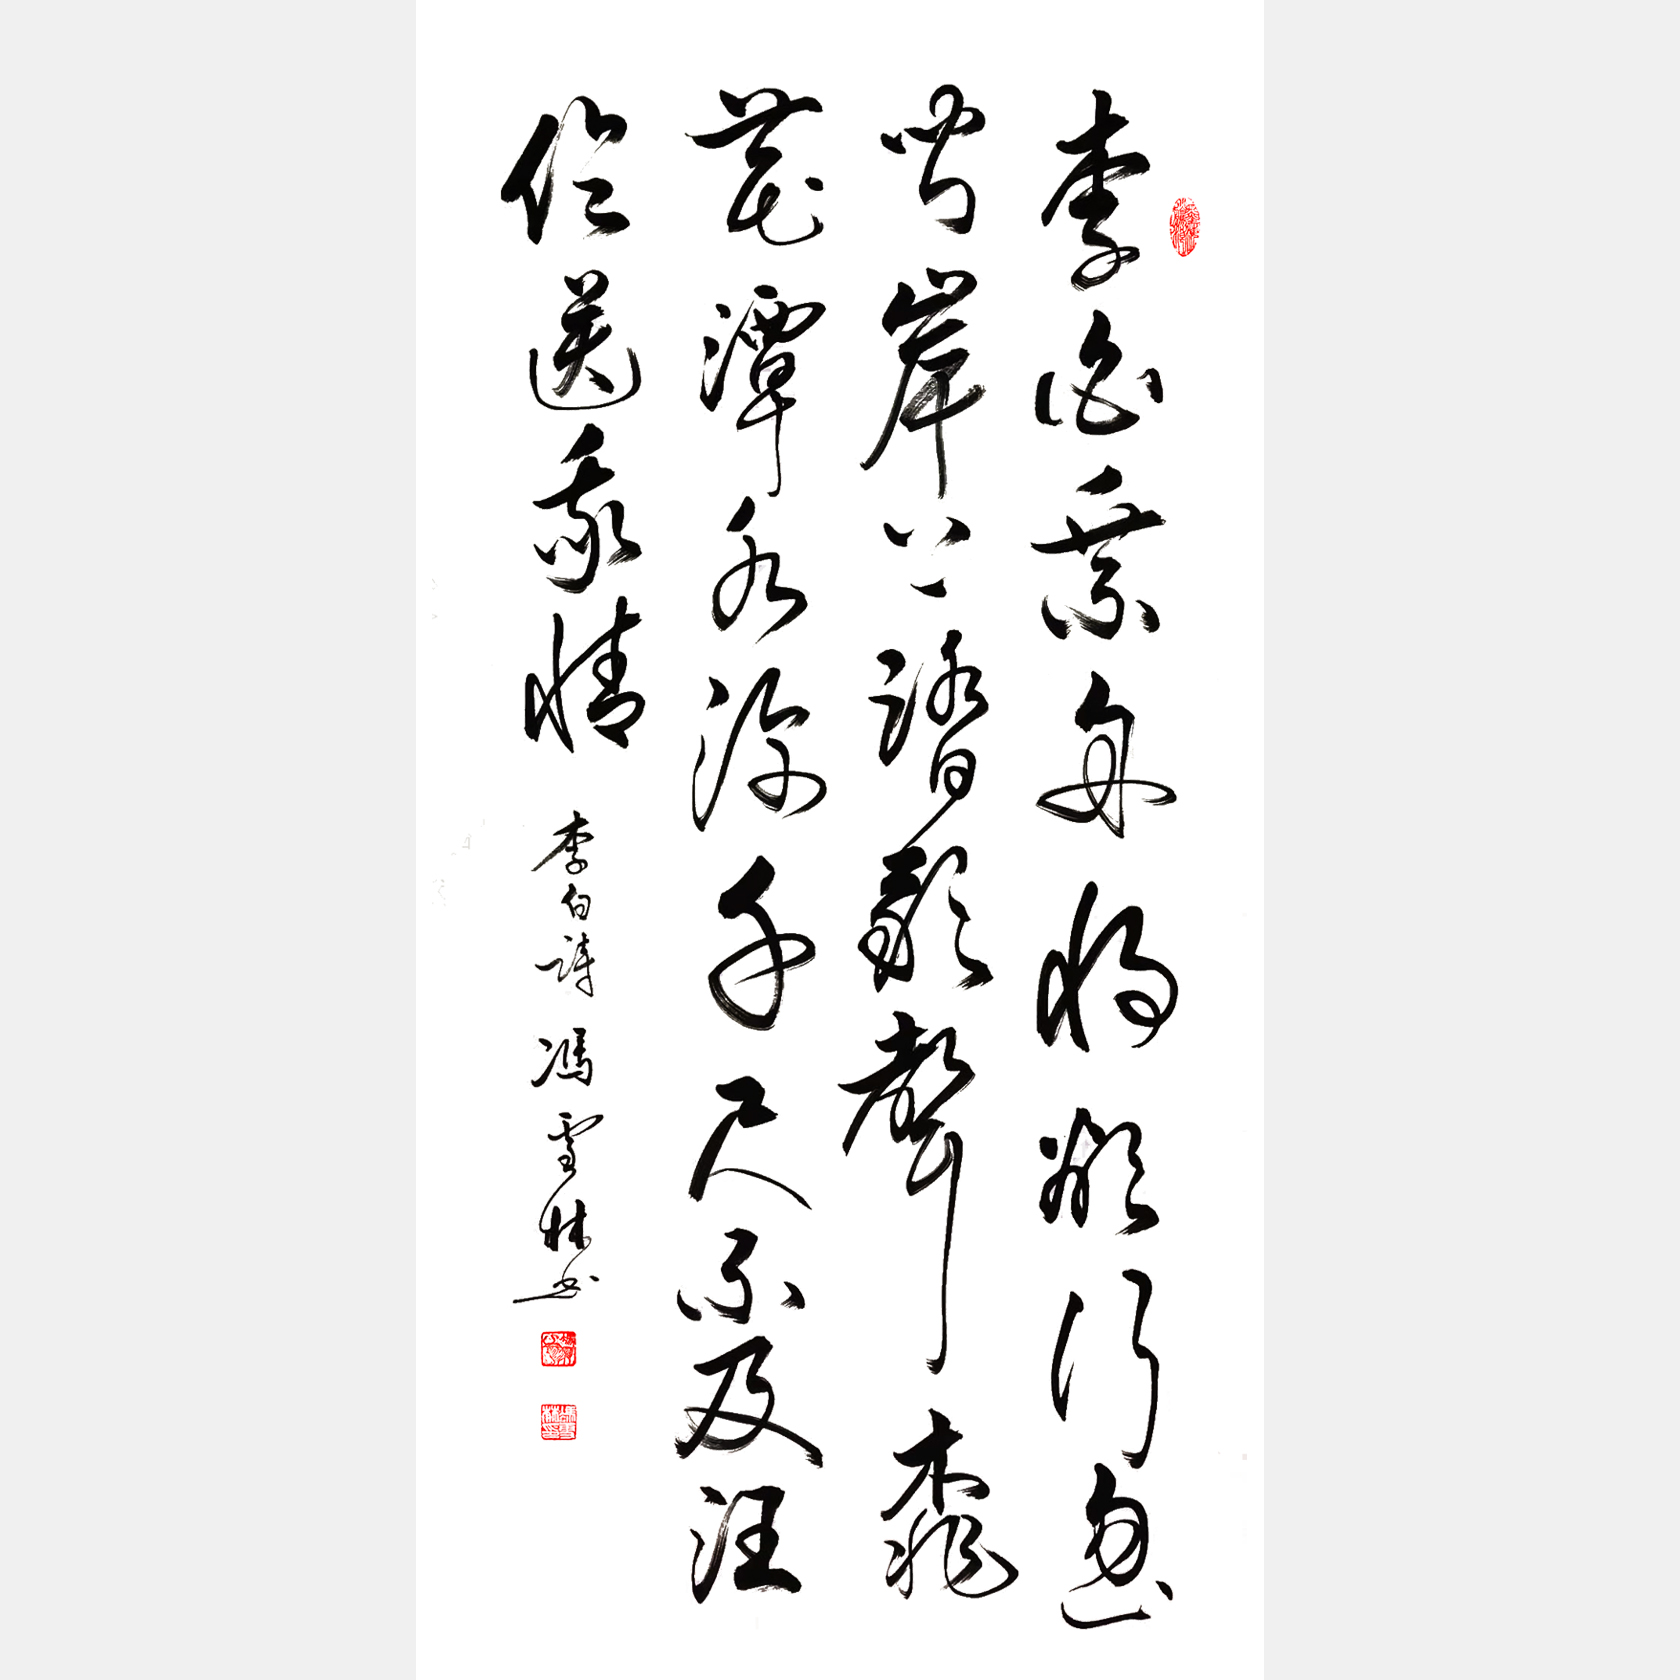 李白乘舟將欲行忽
聞岸上踏歌聲桃
花潭水深千尺不及汪
倫送我情
李白詩 馮雪林書